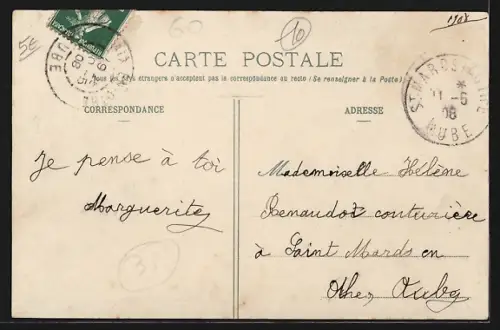 1908
5E
60
10
CARTE POSTALE
Tous les pays étrangers n'acceptent pas la correspondance au recto (Se renseigner à la Poste)
CORRESPONDANCE
ADRESSE
ST MARDS EN OTHE
11-5
08
AUBE
AUBE
08
Je pense à toi
Marguerite
3
Mademoiselle Hélène
Renaudot couturière
à Saint Mards en
Othe, Aube